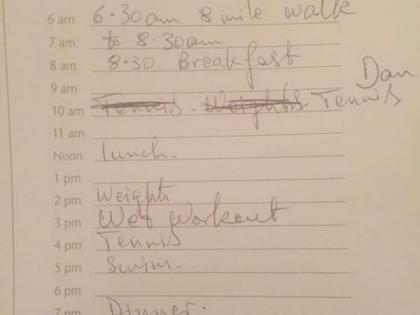 6 am 6.30am 8 mile walk
7 am to 8.30am
8 am 8.30 Breakfast
9 am Dan
10 am Tennis - Weights Tennis
11 am
Noon Lunch.
1 pm
2 pm Weights
3 pm Wet Workout
4 pm Tennis
5 pm Swim.
6 pm
7 pm Dinner.